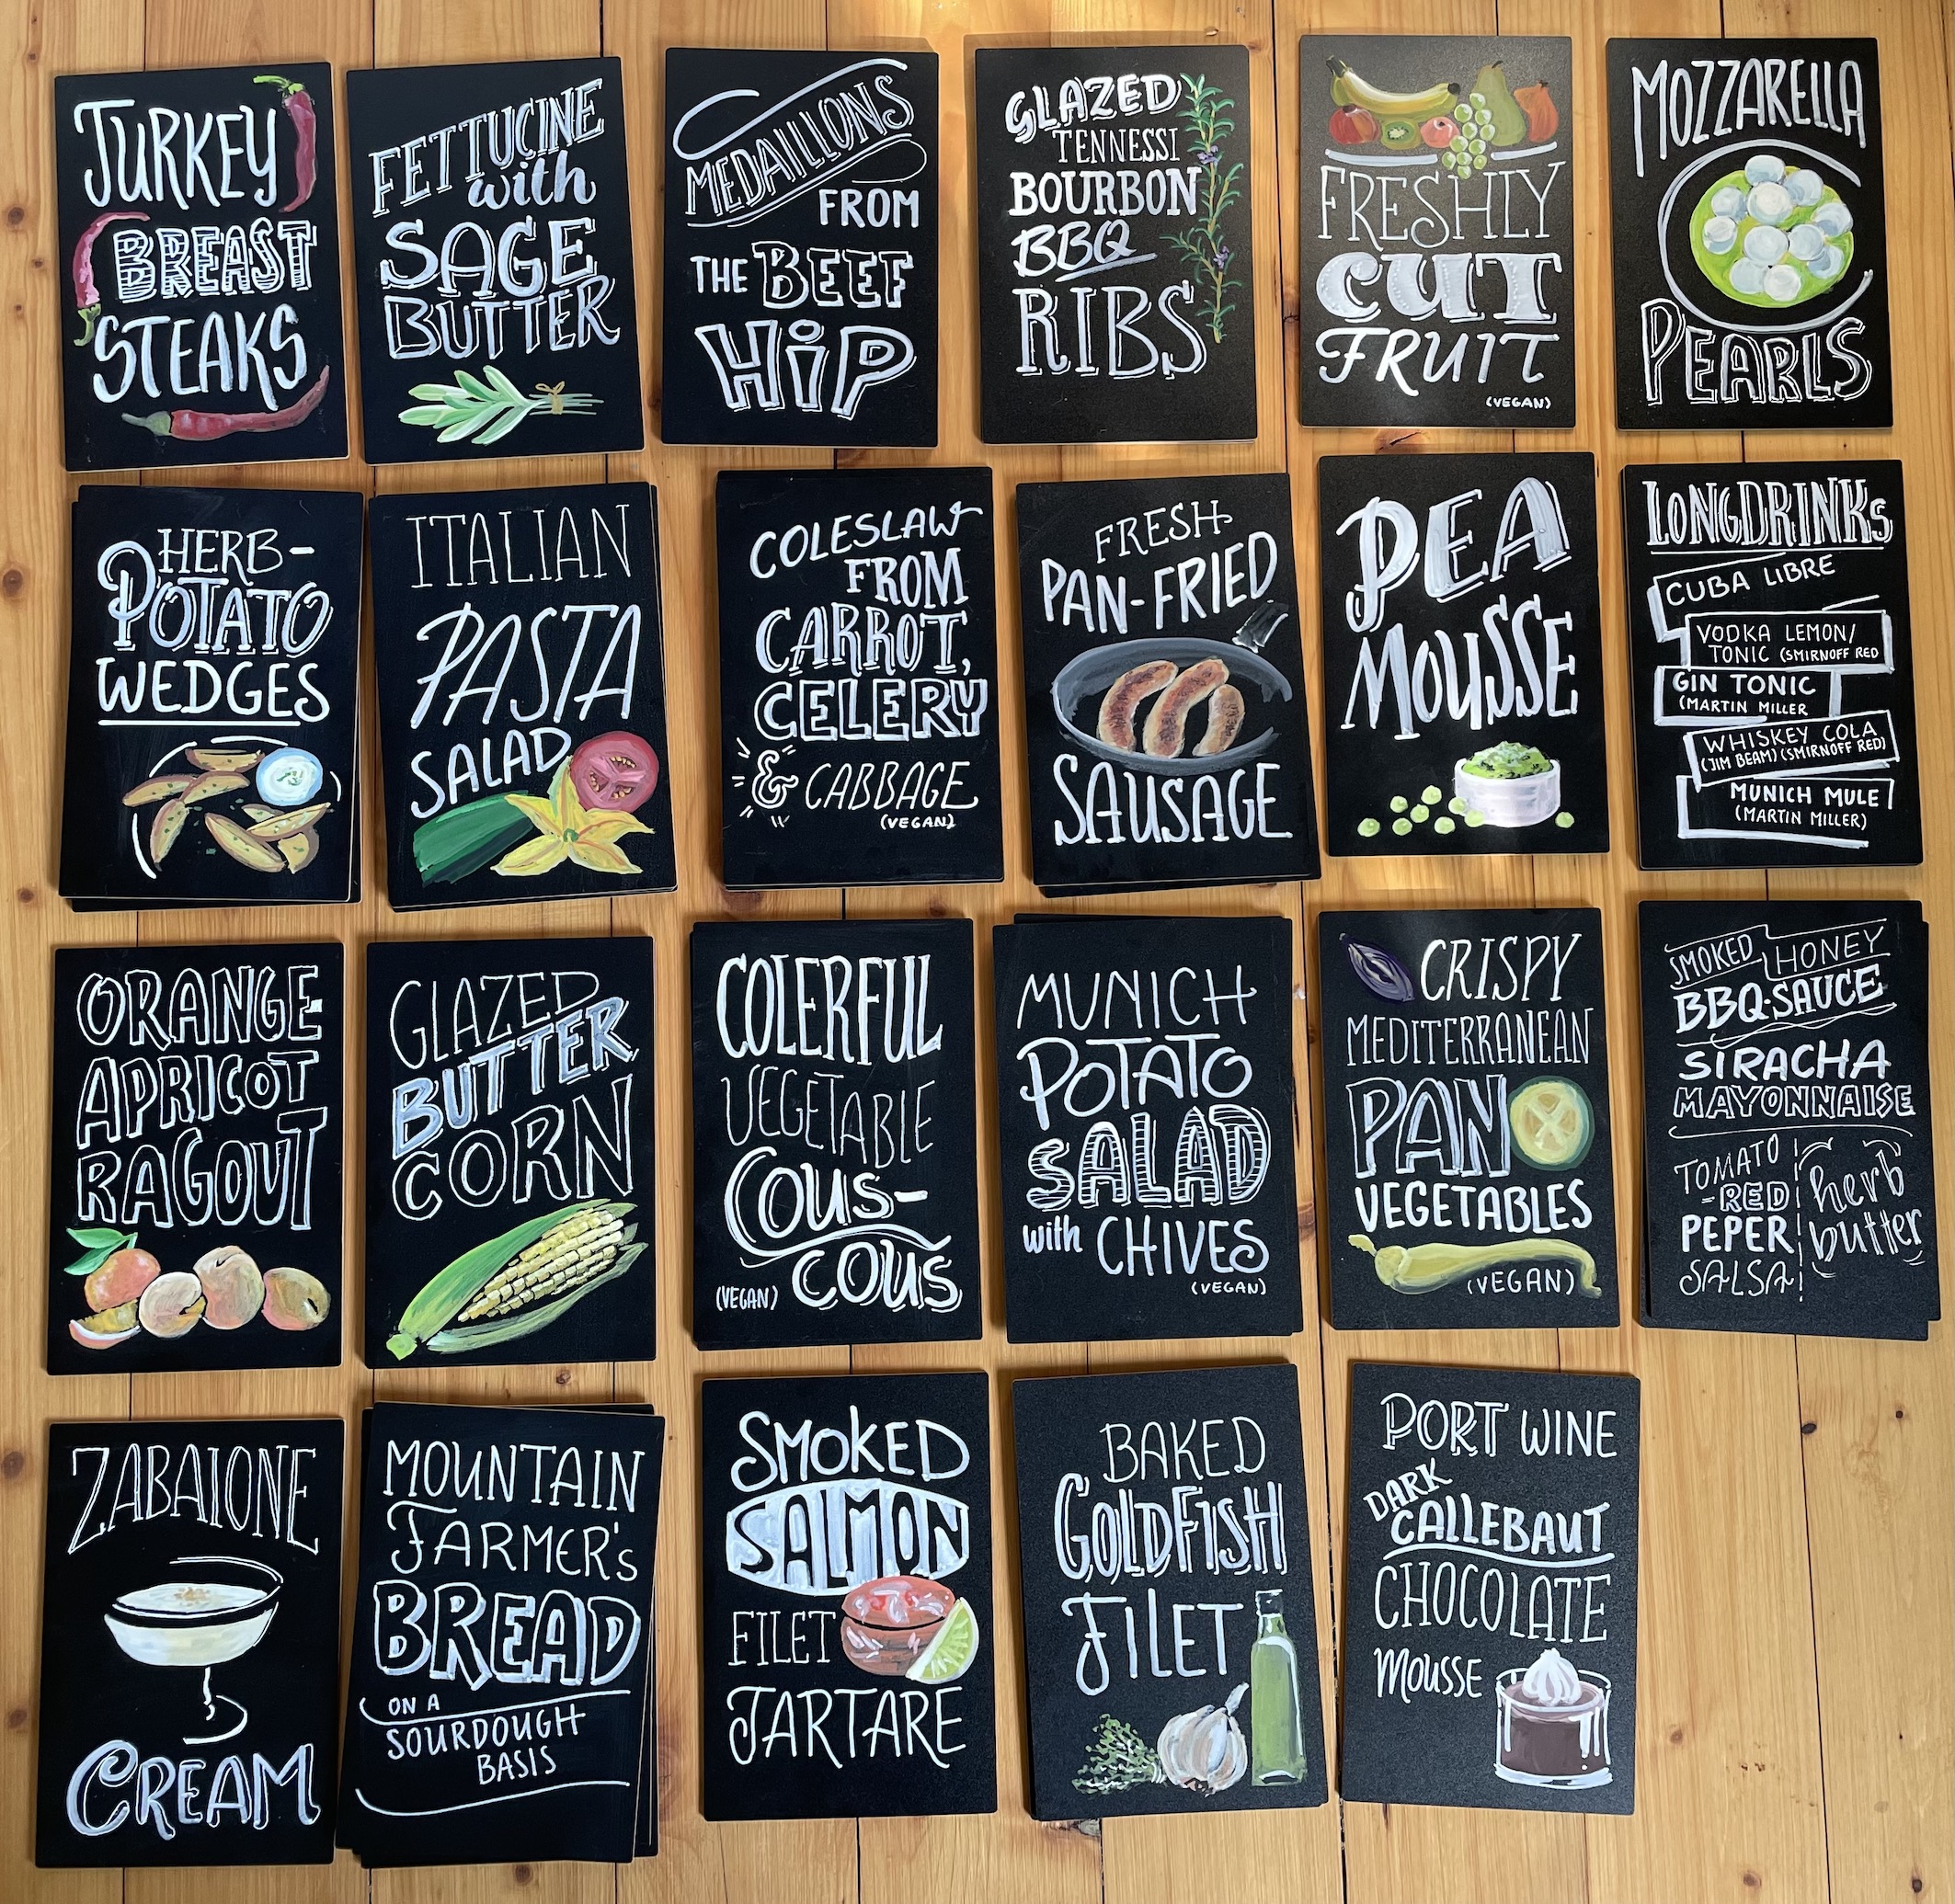 TURKEY
BREAST
STEAKS
FETTUCINE
with
SAGE
BUTTER
MEDAILLONS
FROM
THE BEEF
HiP
GLAZED
TENNESSI
BOURBON
BBQ
RIBS
FRESHLY
CUT
FRUIT
(VEGAN)
MOZZARELLA
PEARLS
HERB-
POTATO
WEDGES
ITALIAN
PASTA
SALAD
COLESLAW
FROM
CARROT,
CELERY
& CABBAGE
(VEGAN)
FRESH
PAN-FRIED
SAUSAGE
PEA
MOUSSE
LONGDRINKs
CUBA LIBRE
VODKA LEMON/
TONIC (SMIRNOFF RED
GIN TONIC
(MARTIN MILLER
WHISKEY COLA
(JIM BEAM) (SMIRNOFF RED)
MUNICH MULE
(MARTIN MILLER)
ORANGE
APRICOT
RAGOUT
GLAZED
BUTTER
CORN
COLERFUL
VEGETABLE
COUS-
COUS
(VEGAN)
MUNICH
POTATO
SALAD
with CHIVES
(VEGAN)
CRISPY
MEDITERRANEAN
PAN
VEGETABLES
(VEGAN)
SMOKED HONEY
BBQ-SAUCE
SIRACHA
MAYONNAISE
TOMATO
-RED
PEPER
SALSA
herb
butter
ZABAIONE
CREAM
MOUNTAIN
FARMER's
BREAD
ON A
SOURDOUGH
BASIS
SMOKED
SALMON
FILET
TARTARE
BAKED
GOLDFISH
FILET
PORT WINE
DARK
CALLEBAUT
CHOCOLATE
MOUSSE